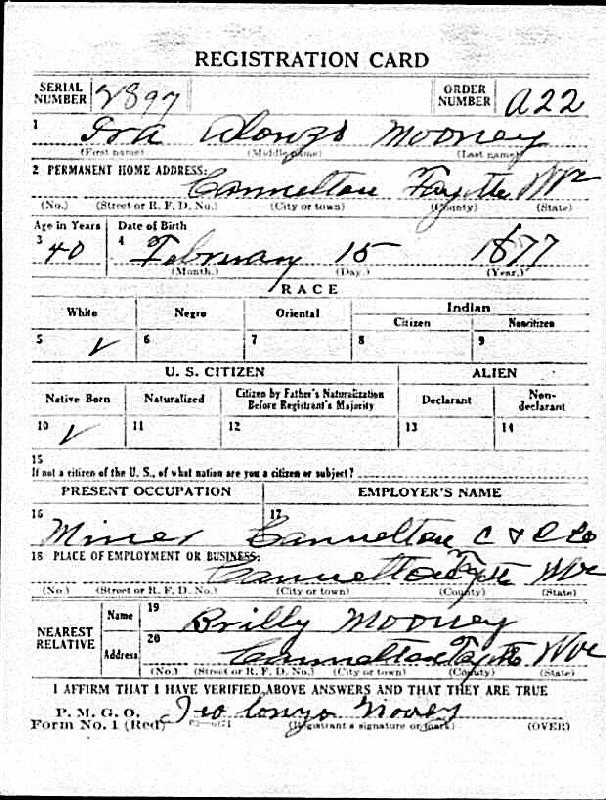 REGISTRATION CARD
SERIAL NUMBER 2897 ORDER NUMBER A22
1 Ira Alonzo Mooney
(First name) (Middle name) (Last name)
2 PERMANENT HOME ADDRESS:
Cannelton Fayette W Va
(No.) (Street or R. F. D. No.) (City or town) (County) (State)
Age in Years Date of Birth
3 40 4 February 15 1877
(Month.) (Day.) (Year.)
RACE
White Negro Oriental Indian
Citizen Noncitizen
5 ✓ 6 7 8 9
U. S. CITIZEN ALIEN
Native Born Naturalized Citizen by Father's Naturalization Before Registrant's Majority Declarant Non-declarant
10 ✓ 11 12 13 14
15
If not a citizen of the U. S., of what nation are you a citizen or subject?
PRESENT OCCUPATION EMPLOYER'S NAME
16 Miner 17 Cannelton C & C Co
18 PLACE OF EMPLOYMENT OR BUSINESS:
Cannelton Fayette W Va
(No.) (Street or R. F. D. No.) (City or town) (County) (State)
NEAREST RELATIVE Name 19 Brilly Mooney
Address 20 Cannelton Fayette W Va
(No.) (Street or R. F. D. No.) (City or town) (County) (State)
I AFFIRM THAT I HAVE VERIFIED ABOVE ANSWERS AND THAT THEY ARE TRUE
P. M. G. O.
Form No. 1 (Red) (Registrant's signature or mark) (OVER)